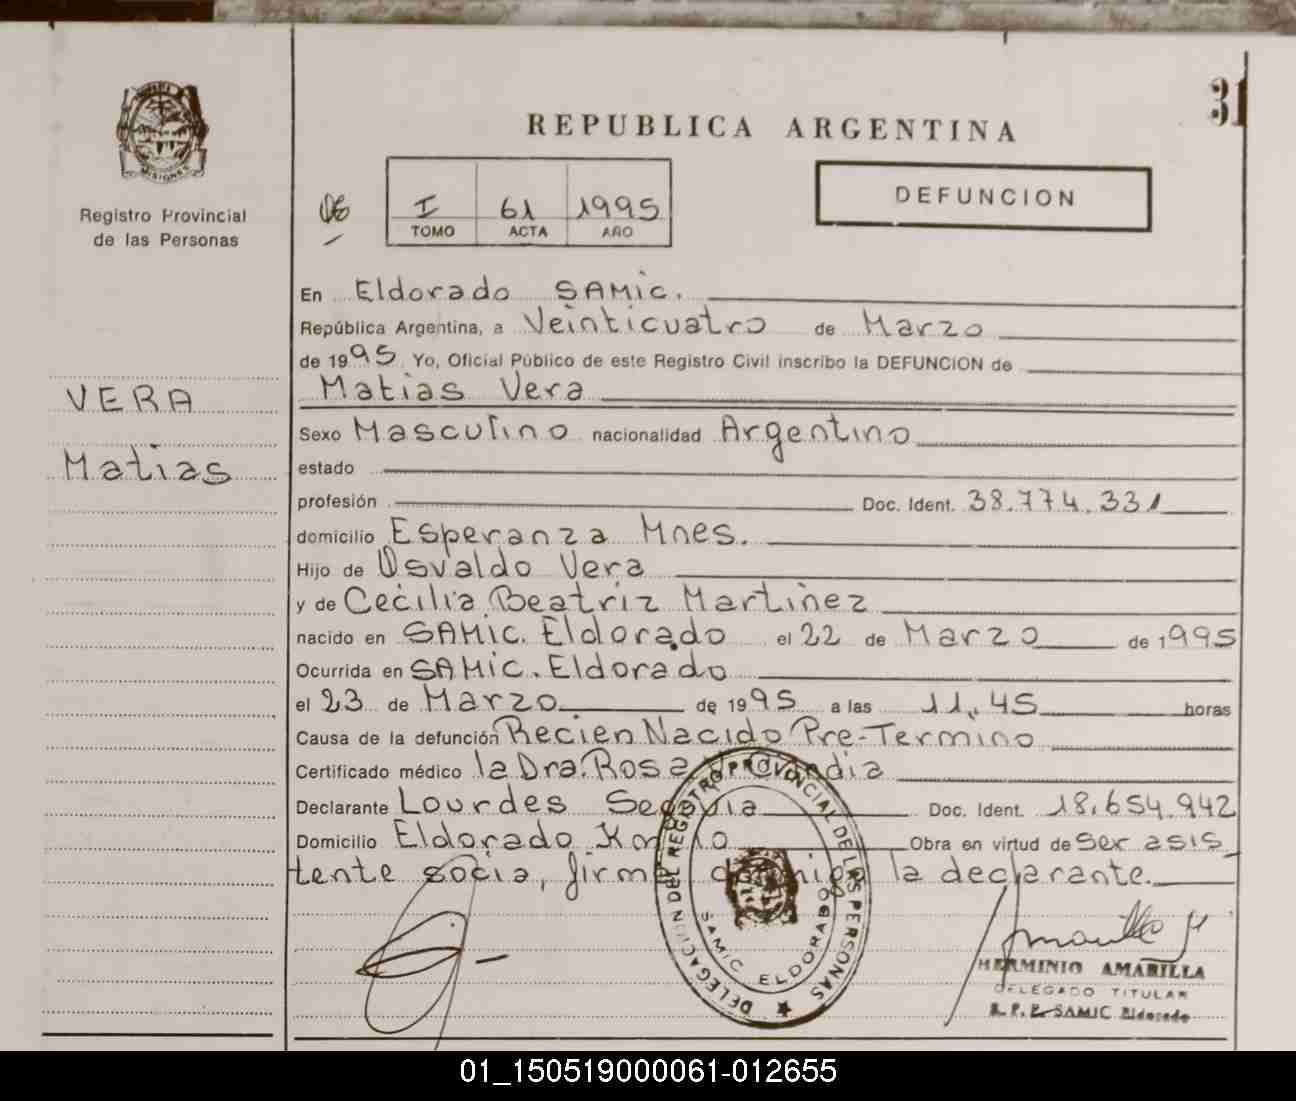 31
REPUBLICA ARGENTINA
MISIONES
Registro Provincial
de las Personas
I 61 1995
TOMO ACTA AÑO
DEFUNCION
En Eldorado SAMIC.
República Argentina, a Veinticuatro de Marzo
de 1995 Yo, Oficial Público de este Registro Civil inscribo la DEFUNCION de
Matias Vera
VERA
Matias
Sexo Masculino nacionalidad Argentino
estado
profesión Doc. Ident. 38.774.331
domicilio Esperanza Mnes.
Hijo de Osvaldo Vera
y de Cecilia Beatriz Martinez
nacido en SAMIC. Eldorado el 22 de Marzo de 1995
Ocurrida en SAMIC. Eldorado
el 23 de Marzo de 1995 a las 11,45 horas
Causa de la defunción Recien Nacido Pre-Termino
Certificado médico la Dra. Rosa
Declarante Lourdes Segovia Doc. Ident. 18.654.942
Domicilio Eldorado Obra en virtud de ser asis_
tente socia, firma la declarante.
DELEGACION DEL REGISTRO PROVINCIAL DE LAS PERSONAS
SAMIC ELDORADO
HERMINIO AMARILLA
DELEGADO TITULAR
R. P. P. SAMIC Eldorado
01_150519000061-012655